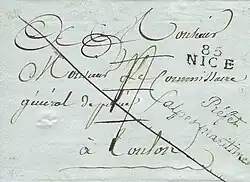 Monsieur
85
NICE
Monsieur Le Commissaire
général de police
Préfet
alpes maritimes
à Toulon